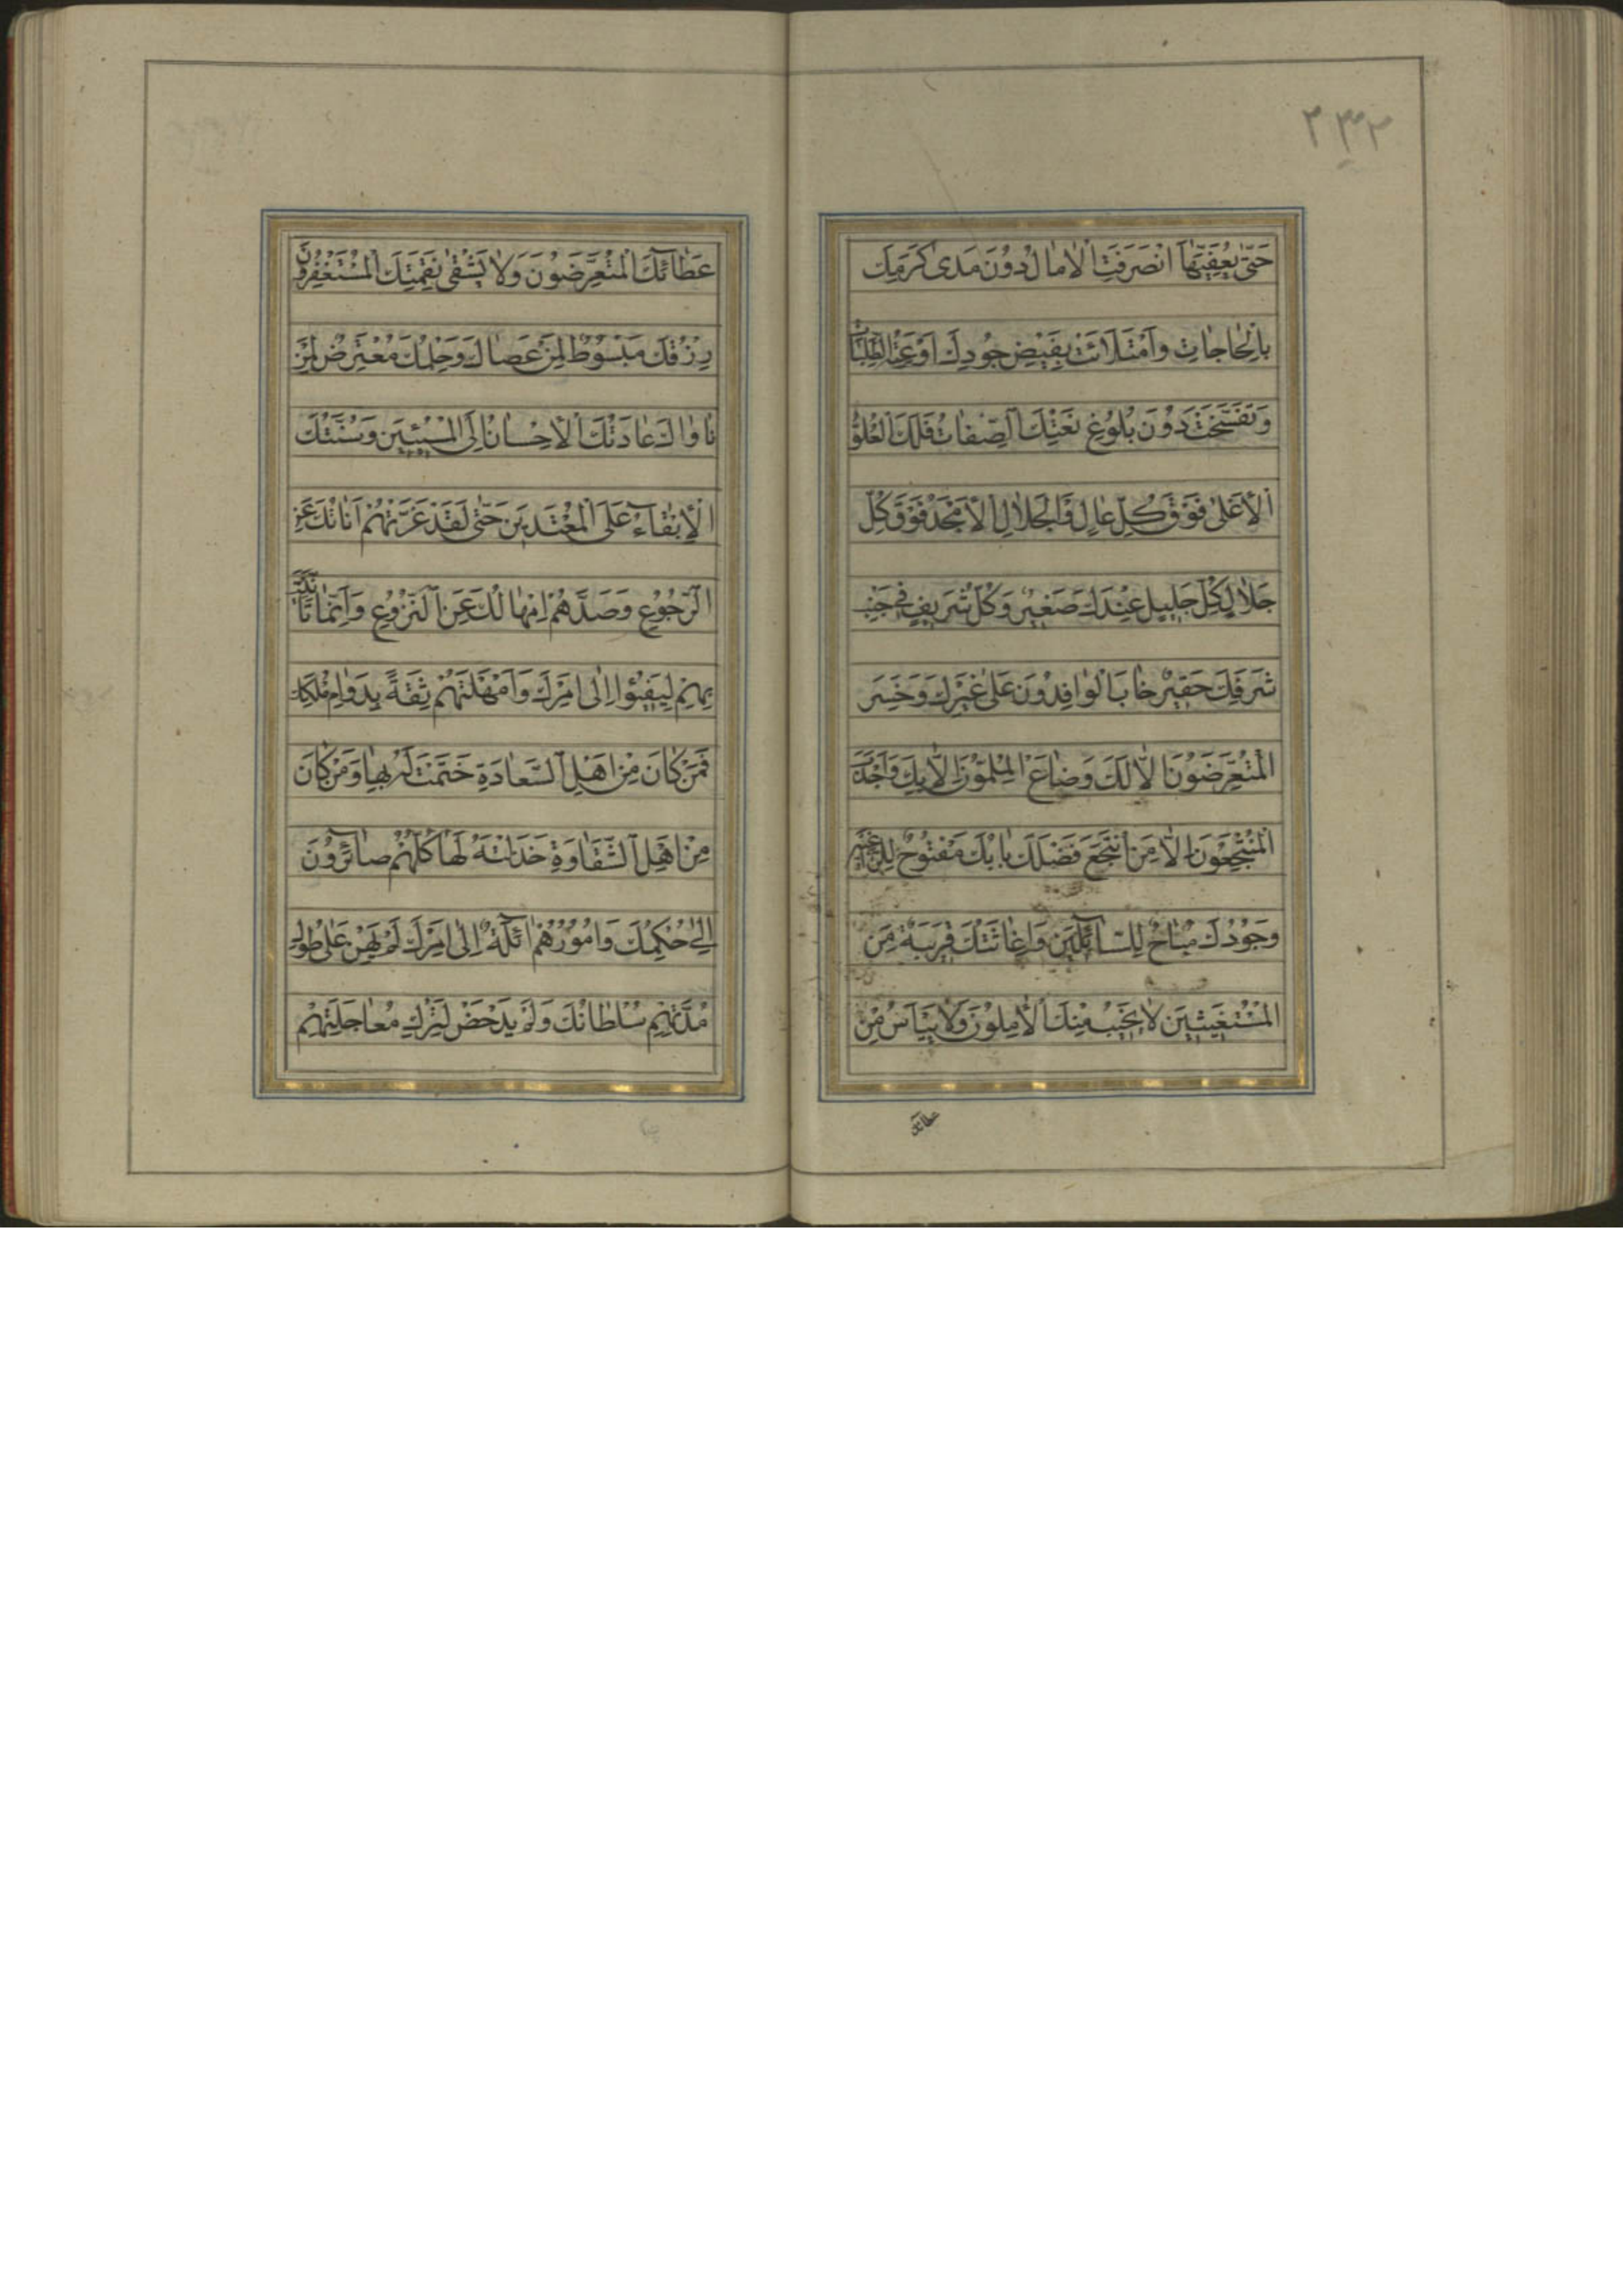 ٢٣٢
حَتّىٰ يُعَفِّيَهَا اَنْصَرَفَتِ الْاٰمَالُ دُونَ مَدىٰ كَرَمِكَ
بِالْحَاجَاتِ وَامْتَلَأَتْ بِفَيْضِ جُودِكَ اَوْعِيَةُ الطَّلِبَاتِ
وَتَفَسَّخَتْ دُونَ بُلُوغِ نَعْتِكَ الصِّفَاتُ فَلَكَ الْعُلُوُّ
الْاَعْلىٰ فَوْقَ كُلِّ عَالٍ وَالْجَلَالُ الْاَمْجَدُ فَوْقَ كُلِّ
جَلَالٍ كُلُّ جَلِيلٍ عِنْدَكَ صَغِيرٌ وَكُلُّ شَرِيفٍ فِي جَنْبِ
شَرَفِكَ حَقِيرٌ خَابَ الْوَافِدُونَ عَلىٰ غَيْرِكَ وَخَسِرَ
الْمُتَعَرِّضُونَ اِلَّا لَكَ وَضَاعَ الْمُلِمُّونَ اِلَّا بِكَ وَاَجْدَبَ
الْمُنْتَجِعُونَ اِلَّا مَنِ انْتَجَعَ فَضْلَكَ بَابُكَ مَفْتُوحٌ لِلرَّاغِبِينَ
وَجُودُكَ مُبَاحٌ لِلسَّائِلِينَ وَاِغَاثَتُكَ قَرِيبَةٌ مِنَ
الْمُسْتَغِيثِينَ لَا يَخِيبُ مِنْكَ الْاٰمِلُونَ وَلَا يَيْأَسُ مِنْ
عطائك
عَطَائِكَ الْمُتَعَرِّضُونَ وَلَا يَشْقىٰ بِنَقِمَتِكَ الْمُسْتَغْفِرُونَ
رِزْقُكَ مَبْسُوطٌ لِمَنْ عَصَاكَ وَحِلْمُكَ مُعْتَرِضٌ لِمَنْ
نَاوَاكَ عَادَتُكَ الْاِحْسَانُ اِلَى الْمُسِيئِينَ وَسُنَّتُكَ
الْاِبْقَاءُ عَلَى الْمُعْتَدِينَ حَتّىٰ لَقَدْ غَرَّتْهُمْ اَنَاتُكَ عَنِ
الرُّجُوعِ وَصَدَّهُمْ اِمْهَالُكَ عَنِ النُّزُوعِ وَاِنَّمَا تَاَنَّيْتَ
بِهِمْ لِيَفِيئُوا اِلىٰ اَمْرِكَ وَاَمْهَلْتَهُمْ ثِقَةً بِدَوَامِ مُلْكِكَ
فَمَنْ كَانَ مِنْ اَهْلِ السَّعَادَةِ خَتَمْتَ لَهُ بِهَا وَمَنْ كَانَ
مِنْ اَهْلِ الشَّقَاوَةِ خَذَلْتَهُ لَهَا كُلُّهُمْ صَائِرُونَ
اِلىٰ حُكْمِكَ وَاُمُورُهُمْ اٰئِلَةٌ اِلىٰ اَمْرِكَ لَمْ يَهِنْ عَلىٰ طُولِ
مُدَّتِهِمْ سُلْطَانُكَ وَلَمْ يَدْحَضْ لِتَرْكِ مُعَاجَلَتِهِمْ